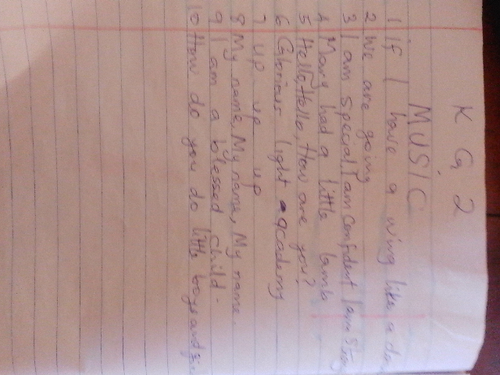 KG 2
MUSIC
1 If I have a wing like a
2 We are going
3 I am special, I am confident I am
4 Mary had a little lamb
5 Hello, Hello, How are you?
6 Glorious light academy
7 up up up
8 My name, My name, My name.
9 I am a blessed child.
10 How do you do little boys and